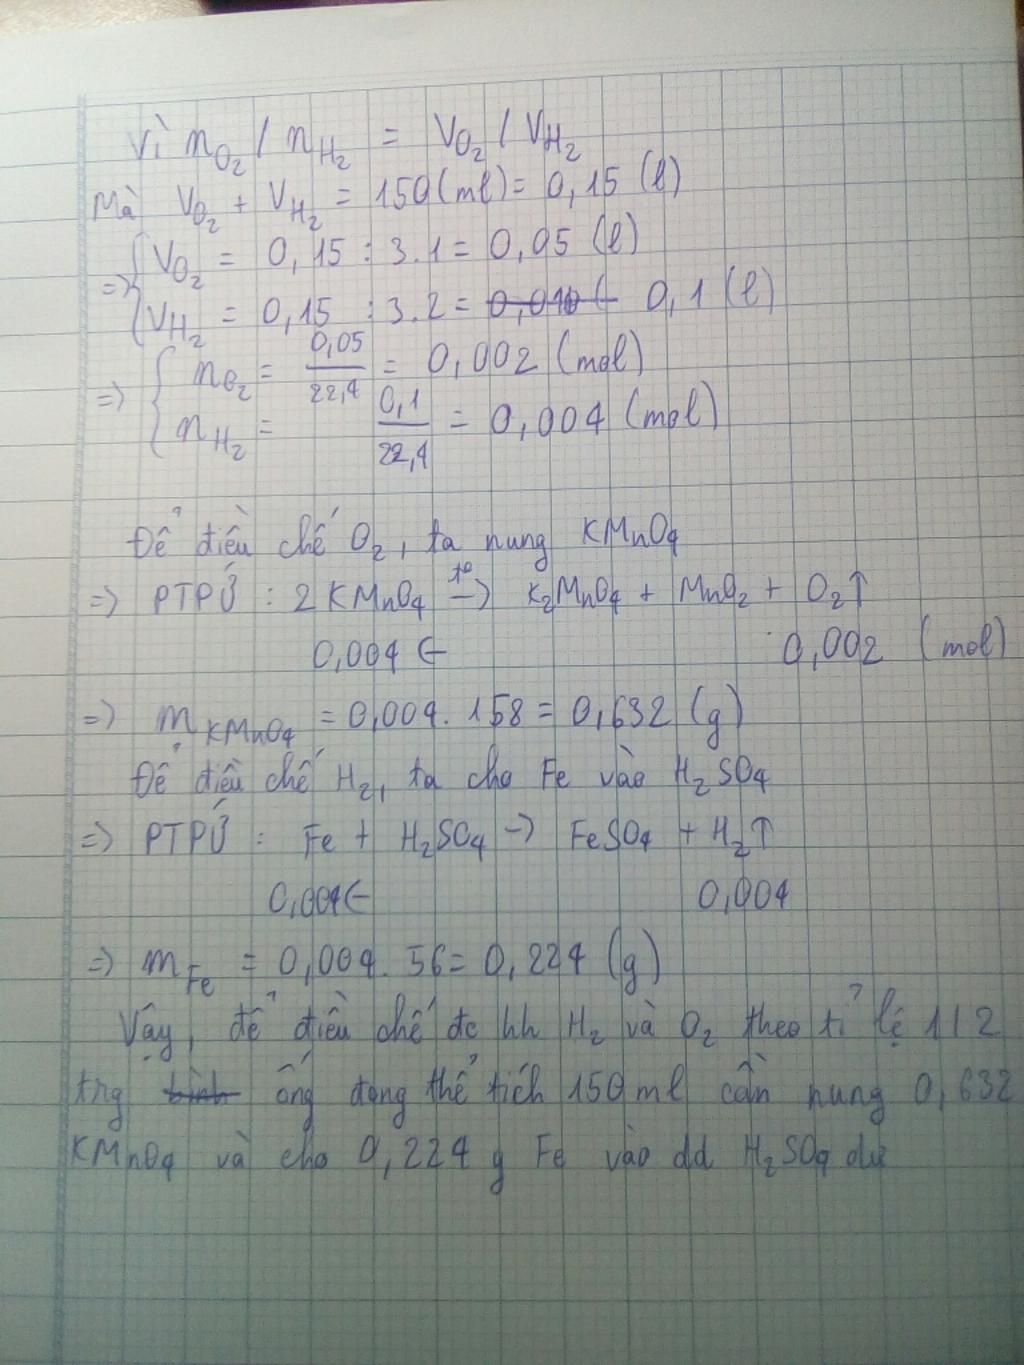 Vì nO₂ / nH₂ = VO₂ / VH₂
Mà VO₂ + VH₂ = 150 (ml) = 0,15 (l)
=> { VO₂ = 0,15 : 3.1 = 0,05 (l)
VH₂ = 0,15 : 3.2 = 0,1 (l)
=> { nO₂ = 0,05/22,4 = 0,002 (mol)
nH₂ = 0,1/22,4 = 0,004 (mol)
Để điều chế O₂, ta nung KMnO₄
=> PTPỨ : 2 KMnO₄ -t°-> K₂MnO₄ + MnO₂ + O₂↑
0,004 <- 0,002 (mol)
=> mKMnO₄ = 0,004. 158 = 0,632 (g)
Để điều chế H₂, ta cho Fe vào H₂SO₄
=> PTPỨ : Fe + H₂SO₄ -> FeSO₄ + H₂↑
0,004 <- 0,004
=> mFe = 0,004. 56 = 0,224 (g)
Vậy, để điều chế đc hh H₂ và O₂ theo tỉ lệ 1/2
trg ống đong thể tích 150 ml cần nung 0,632
KMnO₄ và cho 0,224 g Fe vào dd H₂SO₄ dư